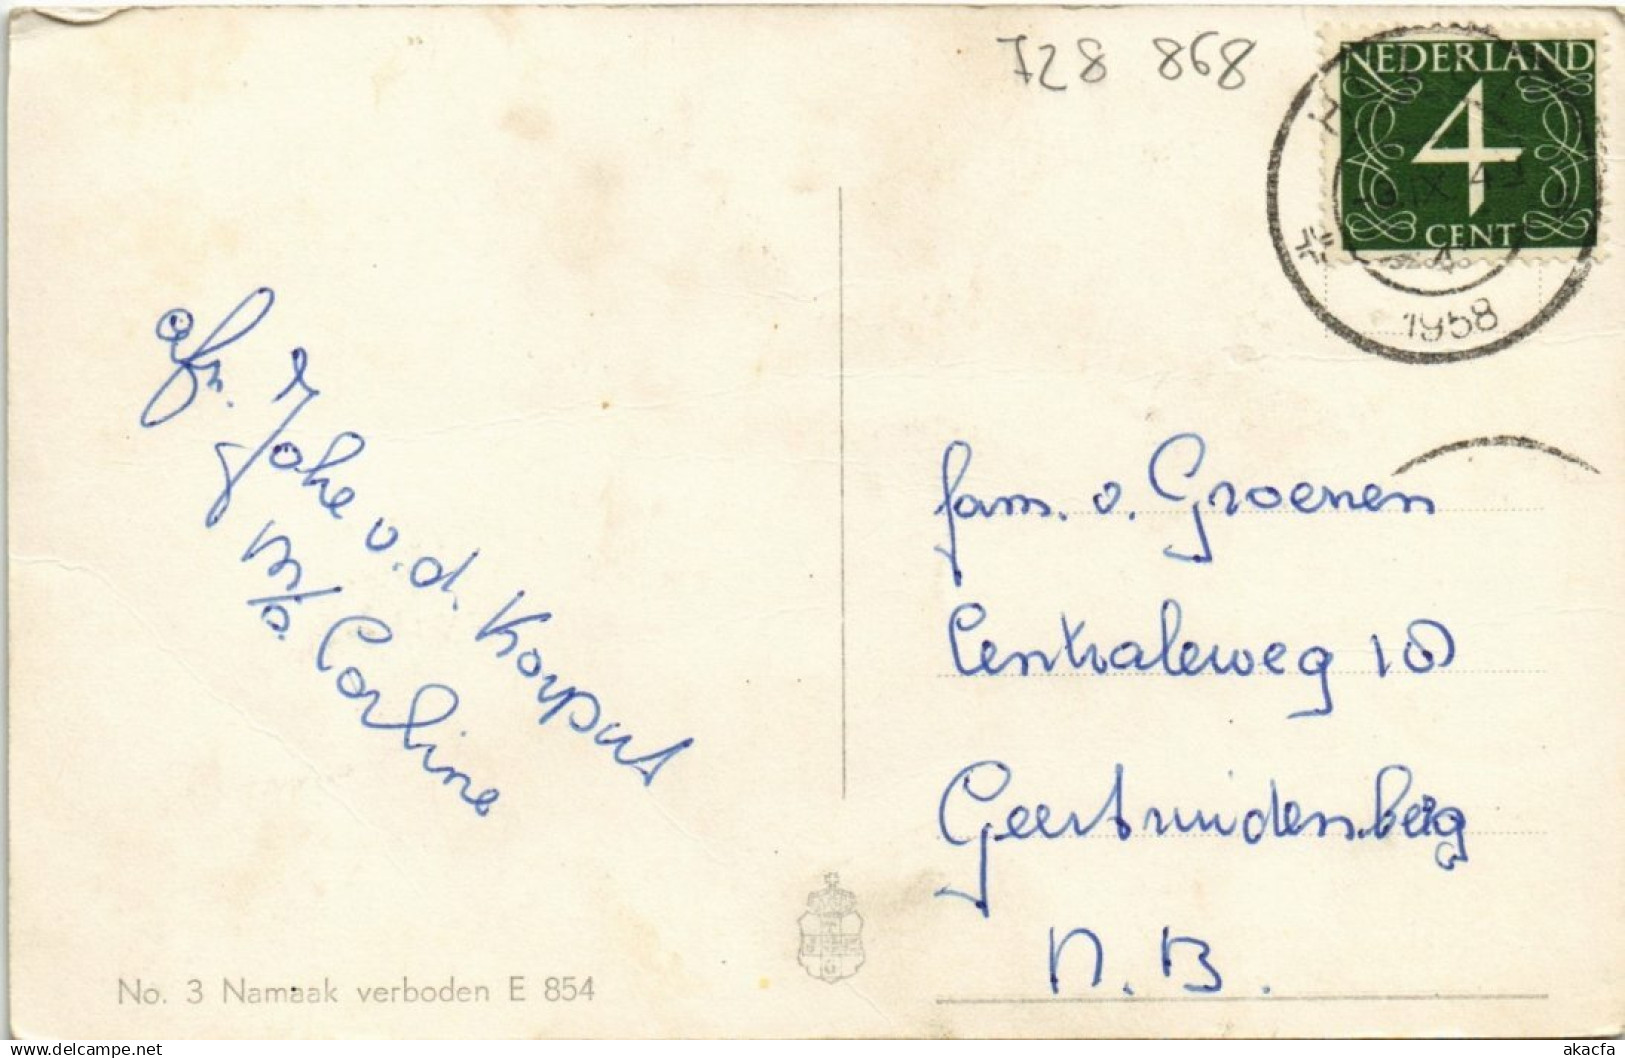 728 868
NEDERLAND
4
CENT
1958
afz.
Joke v.d. Korput
M/s. Carline
fam. v. Groenen
Centraleweg 10
Geertruidenberg
N.B.
No. 3 Namaak verboden E 854
akacfa